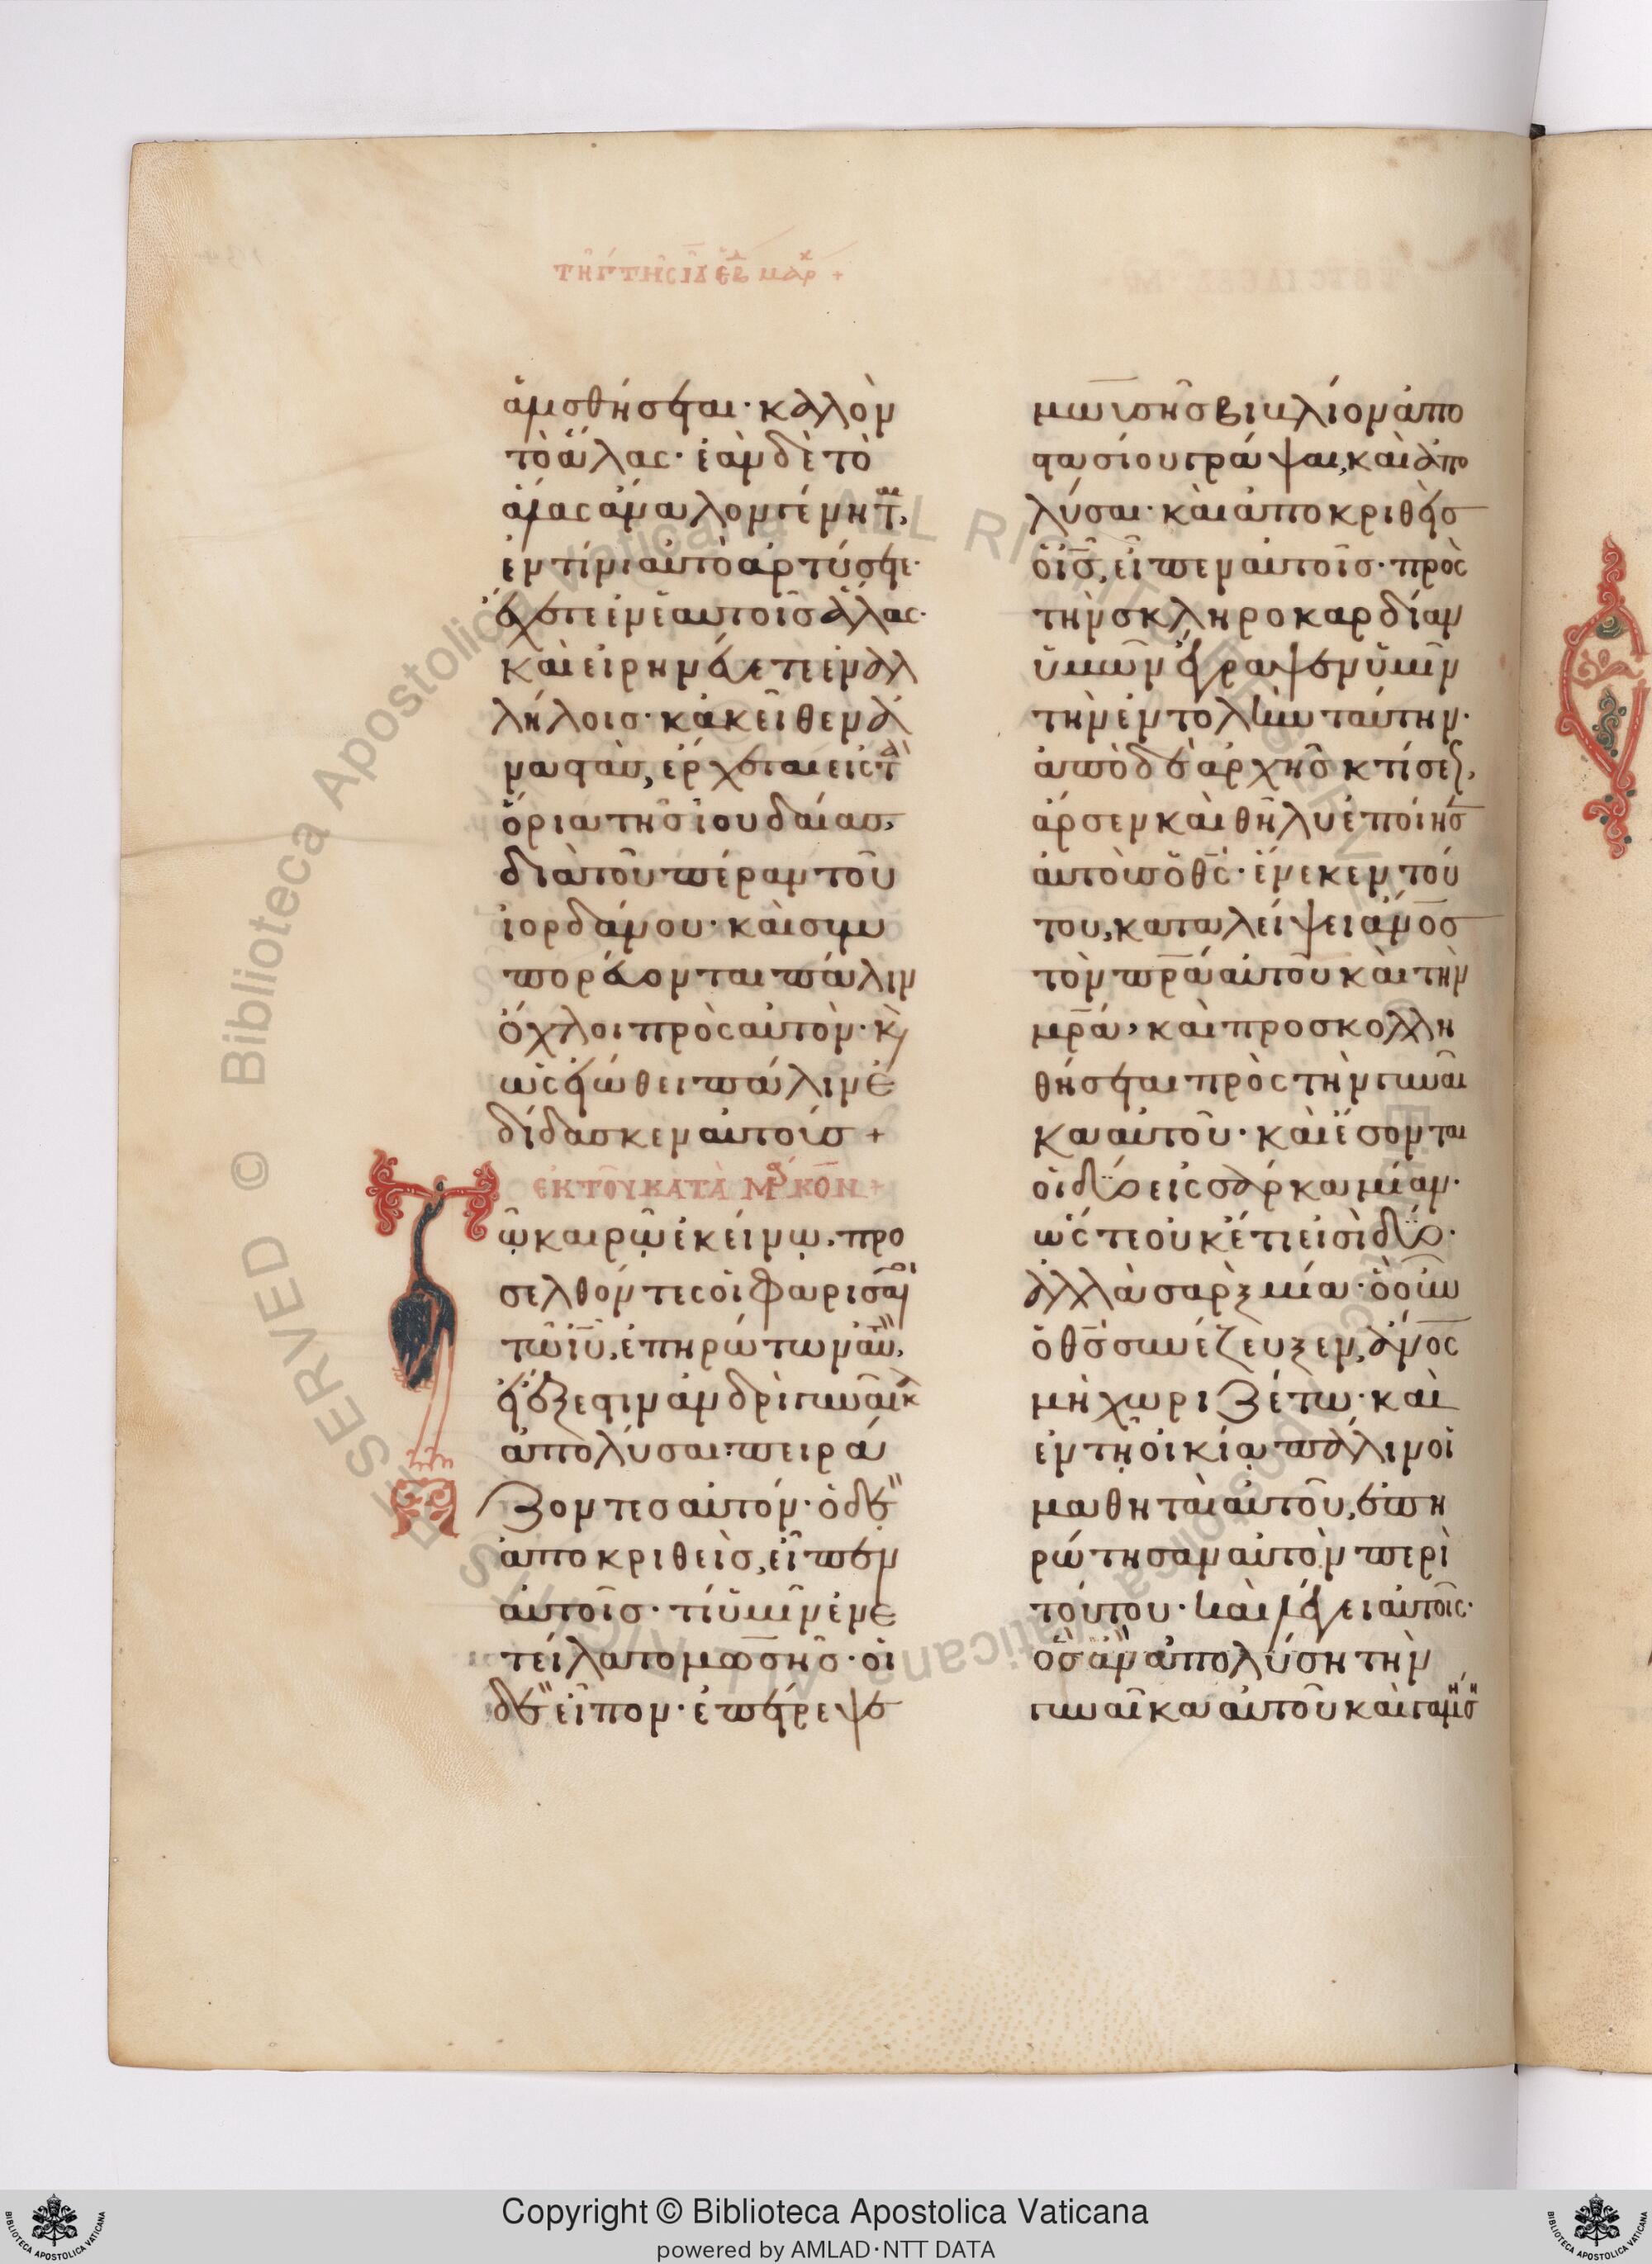 τῇ γ τῆς ιδ εβδ μαρκ +
ἁλισθήσεται· καλὸν
τὸ ἅλας· ἐὰν δὲ τὸ
ἅλας ἄναλον γένηται,
ἐν τίνι αὐτὸ ἀρτύσετε·
ἔχετε ἐν ἑαυτοῖς ἅλας·
καὶ εἰρηνεύετε ἐν ἀλ
λήλοις· κἀκεῖθεν ἀ
ναστὰς, ἔρχεται εἰς τὰ
ὅρια τῆς ἰουδαίας,
διὰ τοῦ πέραν τοῦ
ἰορδάνου· καὶ συμ
πορεύονται πάλιν
ὄχλοι πρὸς αὐτόν· κ̀
ὡς εἰώθει πάλιν ἐ
δίδασκεν αὐτούς +
ἐκ τοῦ κατὰ Μρκον +
Τῷ καιρῷ ἐκείνῳ, προ
σελθόντες οἱ φαρισαῖοι
τῶ ιῦ, ἐπηρώτων αὐτ,
εἰ ἔξεστιν ἀνδρὶ γυναῖκα
ἀπολύσαι· πειρά
ζοντες αὐτόν· ὁ δὲ
ἀποκριθεὶς, εἶπεν
αὐτοῖς· τί ὑμῖν ἐνε
τείλατο μωσῆς· οἱ
δὲ εἶπον· ἐπέτρεψε
μωϋσῆς βιβλίον ἀπο
στασίου γράψαι, καὶ ἀπο
λύσαι· καὶ ἀποκριθεὶς
ὁ ις, εἶπεν αὐτοῖς· πρὸς
τὴν σκληροκαρδίαν
ὑμῶν ἔγραψεν ὑμῖν
τὴν ἐντολὴν ταύτην·
ἀπὸ δὲ ἀρχῆς κτίσεως,
ἄρσεν καὶ θῆλυ ἐποίησεν
αὐτοὺς ὁ θς· ἕνεκεν τού
του, καταλείψει ἄνος
τὸν πρα αὐτοῦ καὶ τὴν
μρα, καὶ προσκολλη
θήσεται πρὸς τὴν γυναῖ
κα αὐτοῦ· καὶ ἔσονται
οἱ δύο εἰς σάρκα μίαν·
ὥστε οὐκέτι εἰσὶ δύο·
ἀλλὰ σὰρξ μία· ὃ οὖν
ὁ θς συνέζευξεν, ἄνος
μὴ χωριζέτω· καὶ
ἐν τῇ οἰκίᾳ πάλιν οἱ
μαθηταὶ αὐτοῦ, ἐπη
ρώτησαν αὐτὸν περὶ
τούτου· καὶ λέγει αὐτοῖς·
ὃς ἂν ἀπολύσῃ τὴν
γυναῖκα αὐτοῦ καὶ γαμήσῃ
Copyright © Biblioteca Apostolica Vaticana
powered by AMLAD·NTT DATA